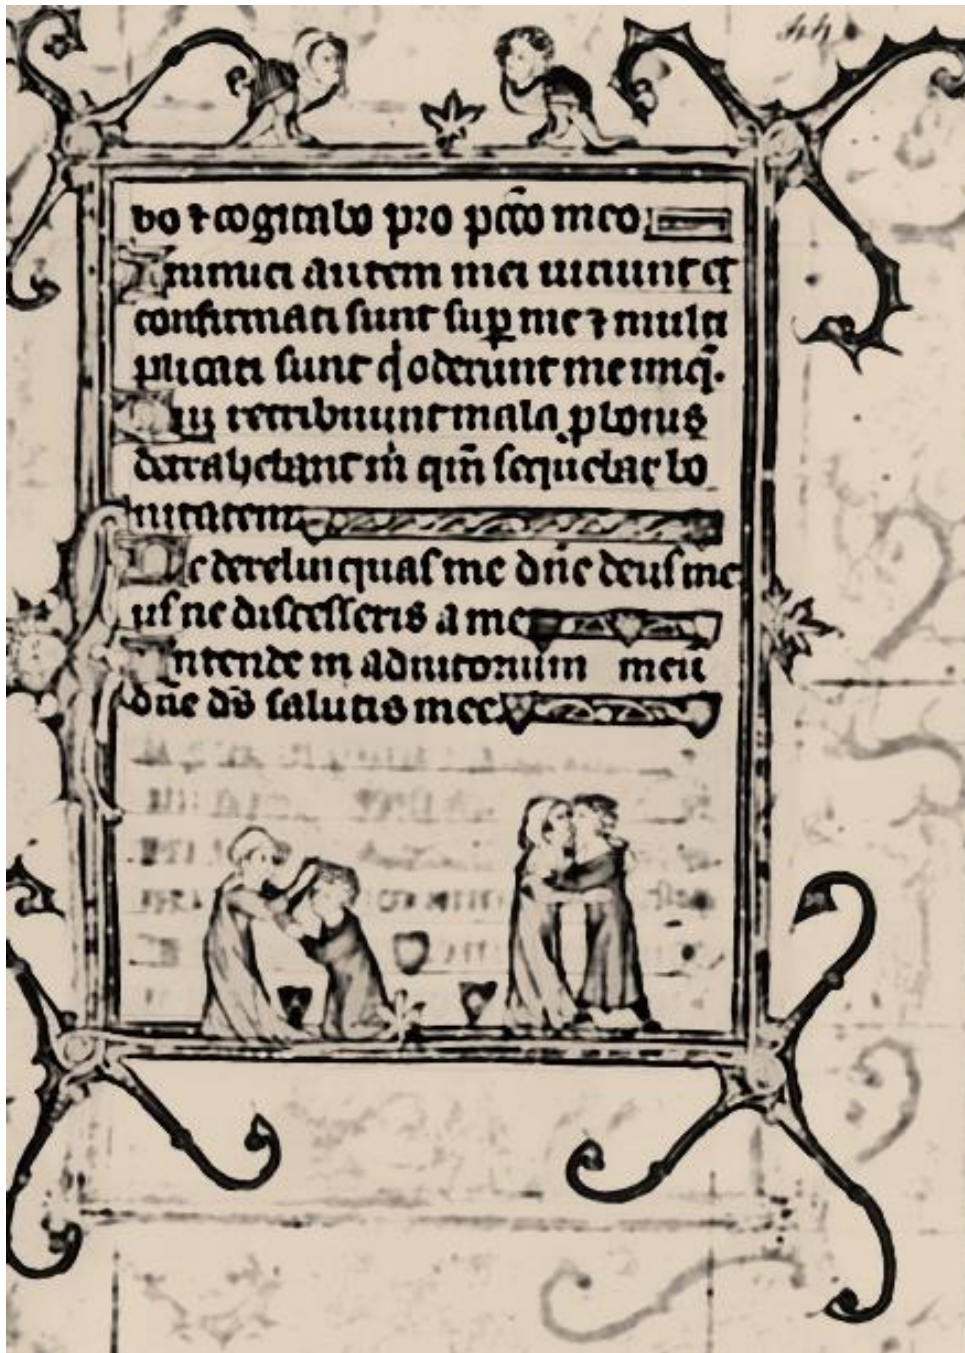 bo ⁊ cogitabo pro pcc̄o meo
Inimici autem mei uiuunt et
confirmati sunt sup̱ me ⁊ multi
plicati sunt q̇ oderunt me iniq̄.
Qui retribuunt mala ꝑ bonis
detrahebant ṁ qm̄ sequebar bo
nitatem
Ne derelinquas me dn̄e deus me
us ne discesseris a me
Intende in adiutorium meū
dn̄e ds̄ salutis mee